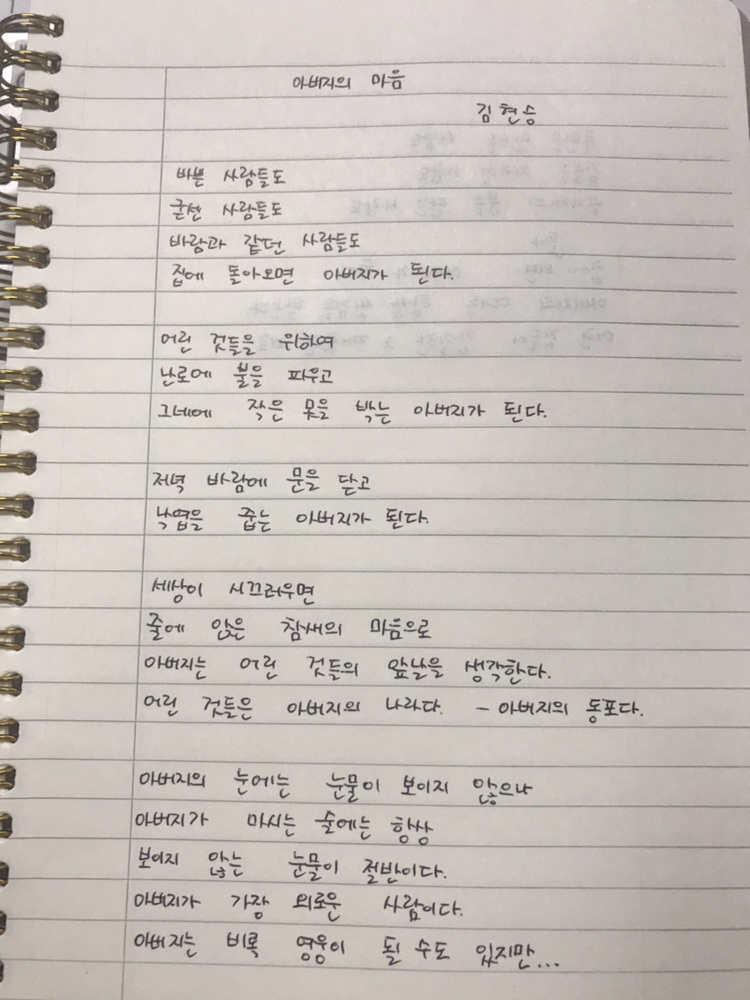 아버지의 마음
김현승
바쁜 사람들도
굳센 사람들도
바람과 같던 사람들도
집에 돌아오면 아버지가 된다.
어린 것들을 위하여
난로에 불을 피우고
그네에 작은 못을 박는 아버지가 된다.
저녁 바람에 문을 닫고
낙엽을 줍는 아버지가 된다.
세상이 시끄러우면
줄에 앉은 참새의 마음으로
아버지는 어린 것들의 앞날을 생각한다.
어린 것들은 아버지의 나라다. - 아버지의 동포다.
아버지의 눈에는 눈물이 보이지 않으나
아버지가 마시는 술에는 항상
보이지 않는 눈물이 절반이다.
아버지가 가장 외로운 사람이다.
아버지는 비록 영웅이 될 수도 있지만...